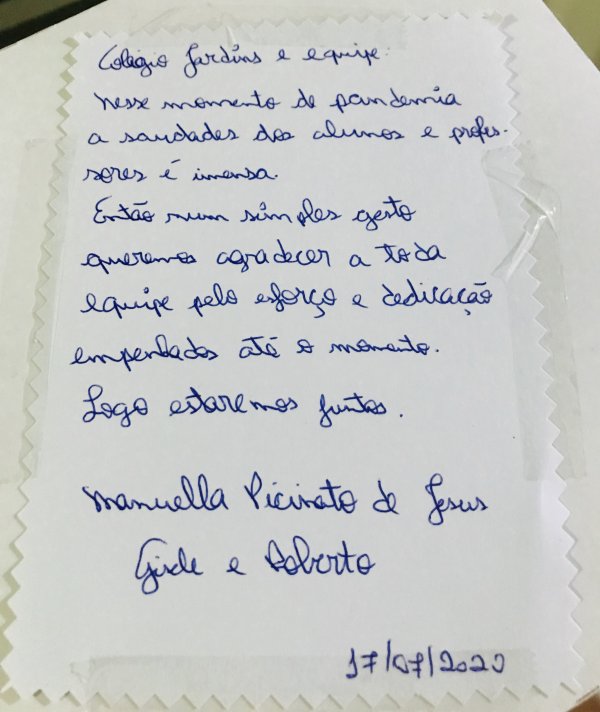 Colégio Jardins e equipe:
Nesse momento de pandemia
a saudades dos alunos e profes-
sores é imensa.
Então num simples gesto
queremos agradecer a toda
equipe pelo esforço e dedicação
empenhados até o momento.
Logo estaremos juntos.
Manuella Picinato de Jesus
Gisele e Roberto
17/07/2020